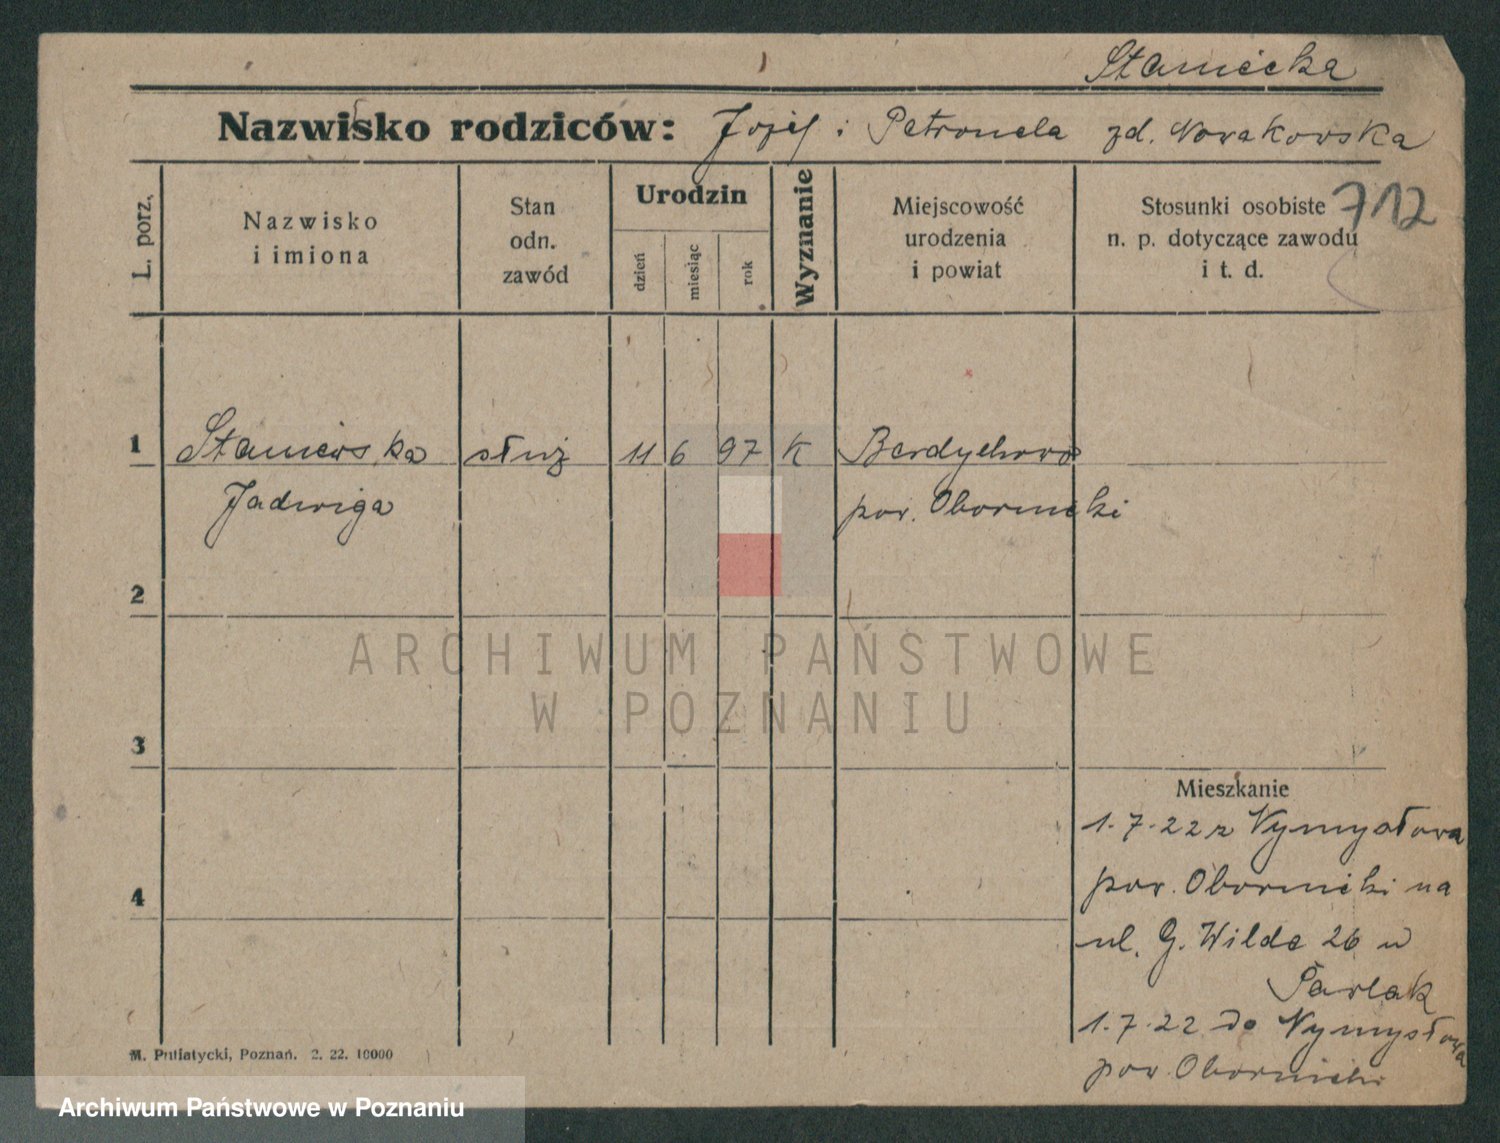 Stanicka
Nazwisko rodziców: Józef i Petronela zd. Nowakowska
L. porz.
Nazwisko
i imiona
Stan
odn.
zawód
Urodzin
dzień
miesiąc
rok
Wyznanie
Miejscowość
urodzenia
i powiat
Stosunki osobiste
n. p. dotyczące zawodu
i t. d.
712
1 Staniewska służ 11 6 97 K Berdychowo
Jadwiga pow. Oborniki
2
ARCHIWUM PAŃSTWOWE
W POZNANIU
3
Mieszkanie
1.7.22 z Wymysłowa
4 pow. Oborniki na
ul. G. Wilde 26 u
Pawlak
1.7.22 do Wymysłowa
pow Oborniki
M. Putiatycki, Poznań. 2. 22. 10000
Archiwum Państwowe w Poznaniu